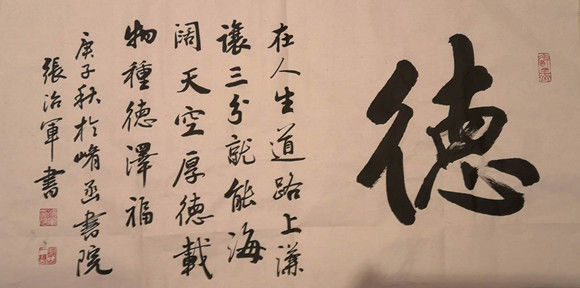 德
在人生道路上謙
讓三分就能海
闊天空厚德載
物種德澤福
庚子秋於崤函書院
張治軍書